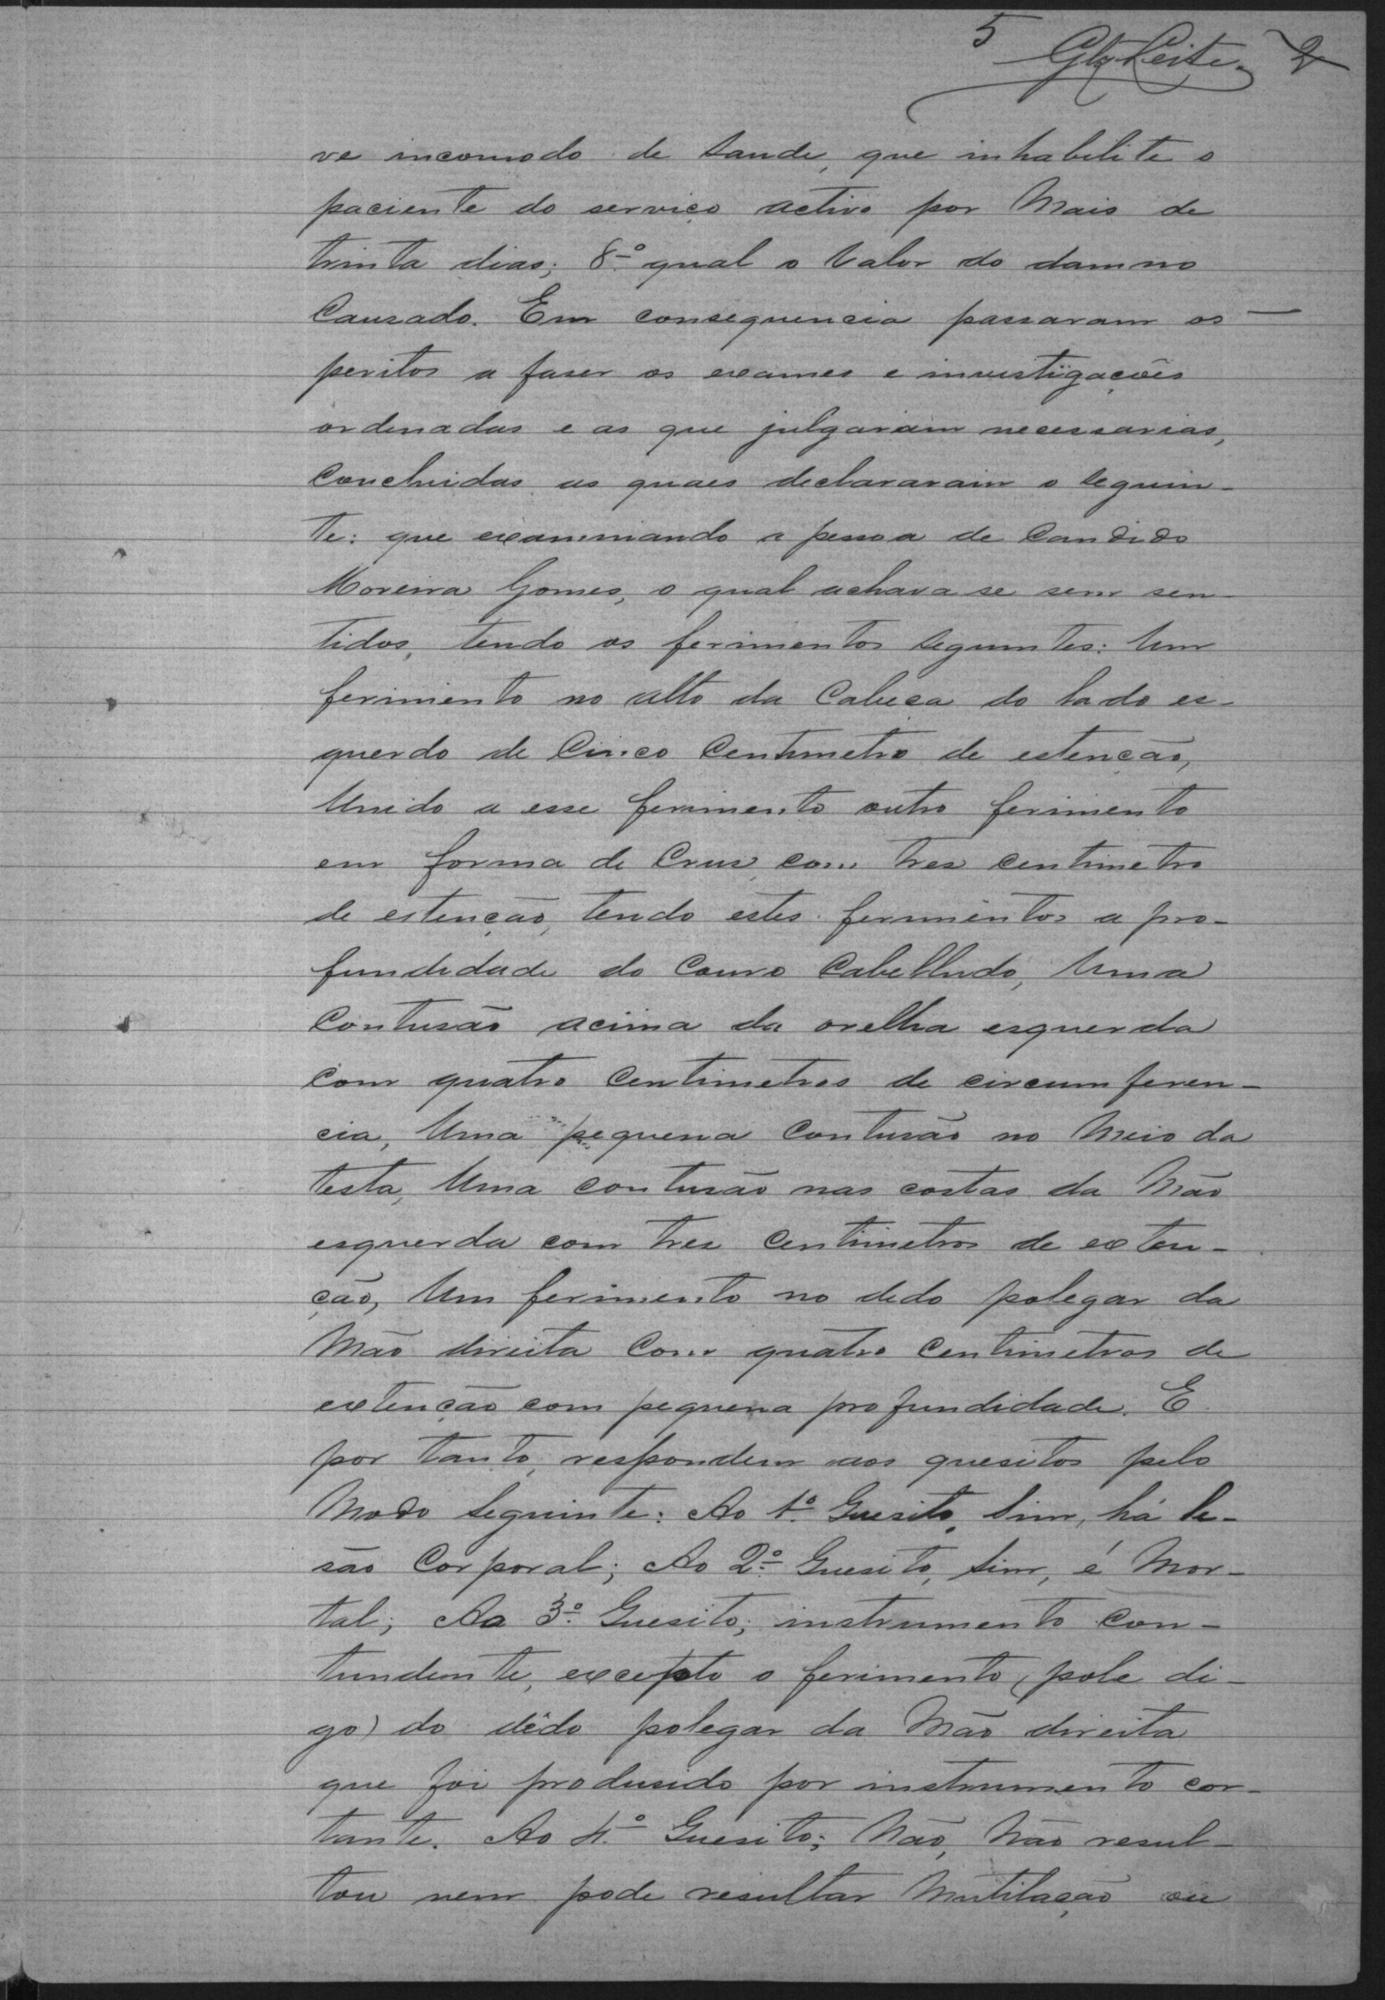 5 Leite 2
ve incomodo de saude, que inhabilite o
paciente do serviço activo por Mais de
trinta dias; 8º qual o Valor do damno
Causado. Em consequencia passaram os —
peritos a faser os exames e investigações
ordenadas e as que julgaram necessarias,
Concluidas as quaes declararam o seguin-
te: que examinando a pessoa de Candido
Moreira Gomes, o qual achava se sem sen-
tidos, tendo os ferimentos seguintes: Um
ferimento no alto da Cabeça do lado es-
querdo de Cinco Centimetro de estenção,
Unido a esse ferimento outro ferimento
em forma de Crus, com tres centimetro
de estenção, tendo estes ferimentos a pro-
fundidade do Couro Cabelludo, Uma
Contusão acima da orelha esquerda
com quatro Centimetros de circumferen-
cia, Uma pequena Contusão no Meio da
testa, Uma contusão nas costas da Mão
esquerda com tres Centimetros de exten-
ção, Um ferimento no dedo polegar da
Mão direita Com quatro Centimetros de
extenção com pequena profundidade. E
por tanto, respondem aos quesitos pelo
Modo seguinte: Ao 1º Quesito, Sim, há le-
são Corporal; Ao 2º Quesito, Sim, é Mor-
tal; Ao 3º Quesito; instrumento Con-
tundente, excepto o ferimento (pole di-
go) do dêdo polegar da Mão direita
que foi produsido por instrumento cor-
tante. Ao 4º Quesito; Não, Não resul-
tou nem pode resultar Mutilação ou